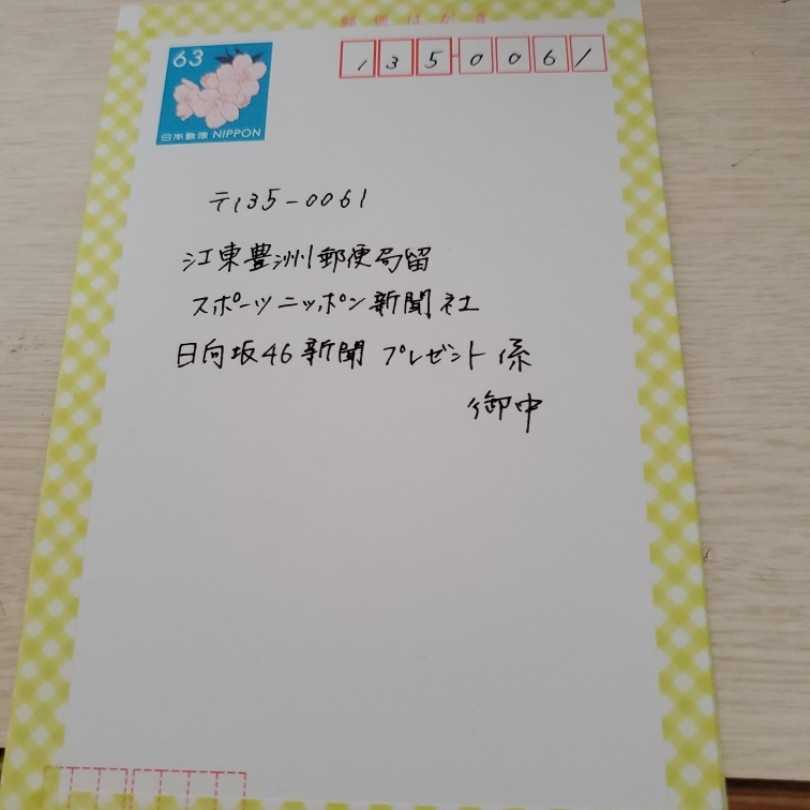 郵便はがき
63
135-0061
日本郵便 NIPPON
〒135-0061
江東豊洲郵便局留
スポーツニッポン新聞社
日向坂46新聞 プレゼント係
御中